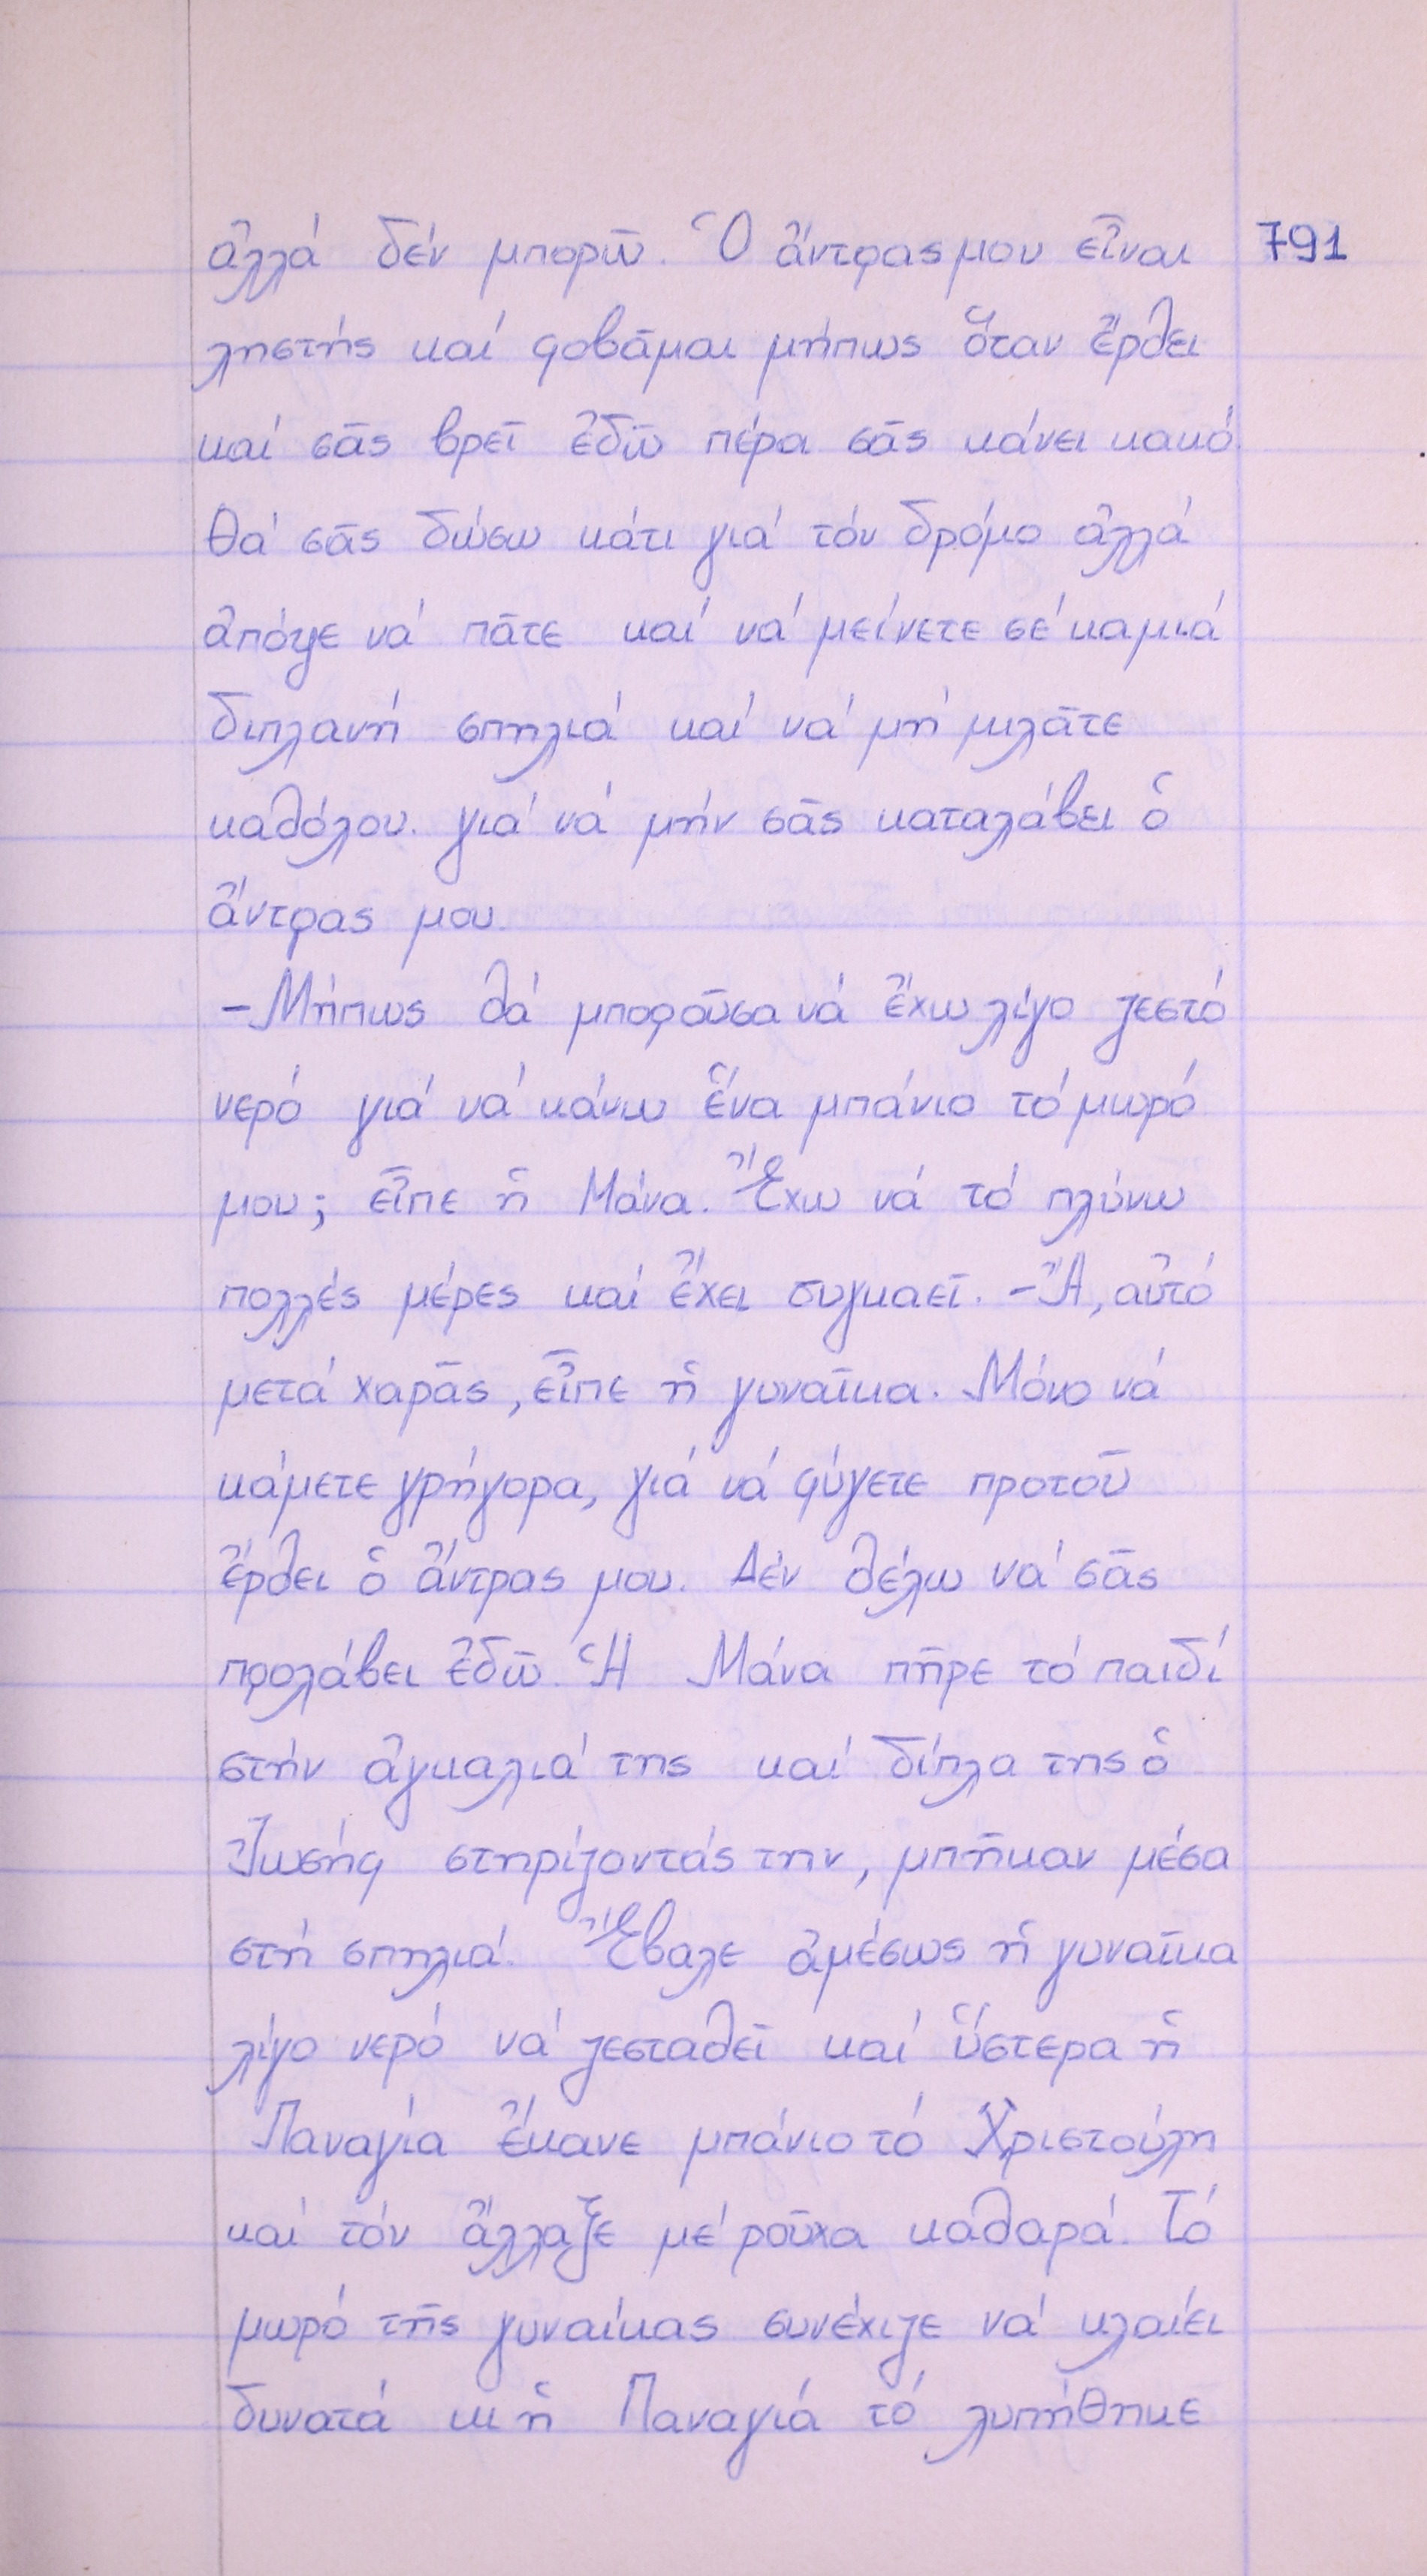 ἀλλά δέν μπορῶ. Ὁ ἄντρας μου εἶναι 791
ληστής καί φοβᾶμαι μήπως ὅταν ἔρθει
καί σᾶς βρεῖ ἐδῶ πέρα σᾶς κάνει κακό.
Θά σᾶς δώσω κάτι γιά τόν δρόμο ἀλλά
ἀπόψε νά πᾶτε καί νά μείνετε σέ καμιά
διπλανή σπηλιά καί νά μή μιλᾶτε
καθόλου. γιά νά μήν σᾶς καταλάβει ὁ
ἄντρας μου.
-Μήπως θά μποροῦσα νά ἔχω λίγο ζεστό
νερό γιά νά κάνω ἕνα μπάνιο τό μωρό
μου; εἶπε ἡ Μάνα. Ἔχω νά τό πλύνω
πολλές μέρες καί ἔχει συγκαεῖ. -Ἄ, αὐτό
μετά χαρᾶς, εἶπε ἡ γυναῖκα. Μόνο νά
κάμετε γρήγορα, γιά νά φύγετε προτοῦ
ἔρθει ὁ ἄντρας μου. Δέν θέλω νά σᾶς
προλάβει ἐδῶ. Ἡ Μάνα πῆρε τό παιδί
στήν ἀγκαλιά της καί δίπλα της ὁ
Ἰωσήφ στηρίζοντάς την, μπῆκαν μέσα
στή σπηλιά. Ἔβαλε ἀμέσως ἡ γυναῖκα
λίγο νερό νά ζεσταθεῖ καί ὕστερα ἡ
Παναγία ἔκανε μπάνιο τό Χριστούλη
καί τόν ἄλλαξε μέ ροῦχα καθαρά. Τό
μωρό τῆς γυναίκας συνέχιζε νά κλαίει
δυνατά κι ἡ Παναγιά τό λυπήθηκε